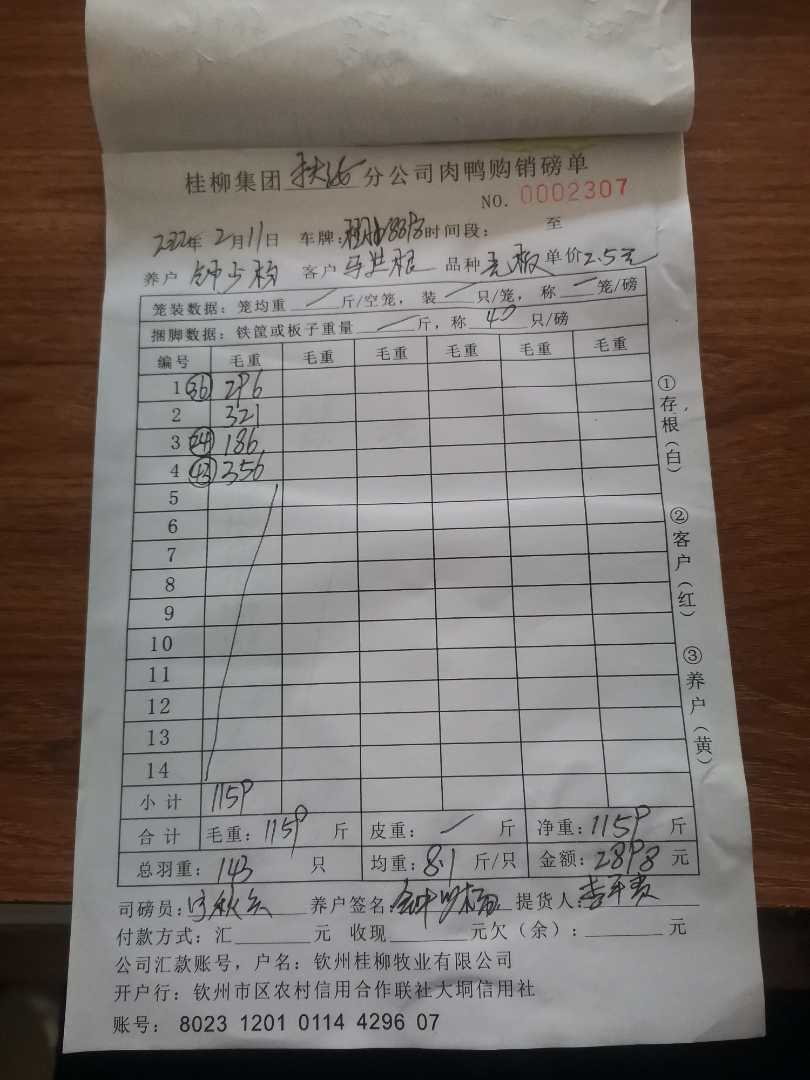 桂柳集团 扶绥 分公司肉鸭购销磅单
NO. 0002307
2022年 2月11日 车牌: 时间段: 至
养户 钟 客户 根 品种 单价 2.5元
笼装数据: 笼均重 / 斤/空笼, 装 / 只/笼, 称 / 笼/磅
捆脚数据: 铁筐或板子重量 / 斤, 称 40 只/磅
编号 毛重 毛重 毛重 毛重 毛重 毛重
1 36 296
2 321
3 24 186
4 43 356
5
6
7
8
9
10
11
12
13
14
小计 1159
合计 毛重: 1159 斤 皮重: / 斤 净重: 1159 斤
总羽重: 143 只 均重: 8.1 斤/只 金额: 2898 元
司磅员: 养户签名: 钟 提货人:
付款方式: 汇 元 收现 元欠(余): 元
公司汇款账号, 户名: 钦州桂柳牧业有限公司
开户行: 钦州市区农村信用合作联社大垌信用社
账号: 8023 1201 0114 4296 07
①存根(白)
②客户(红)
③养户(黄)